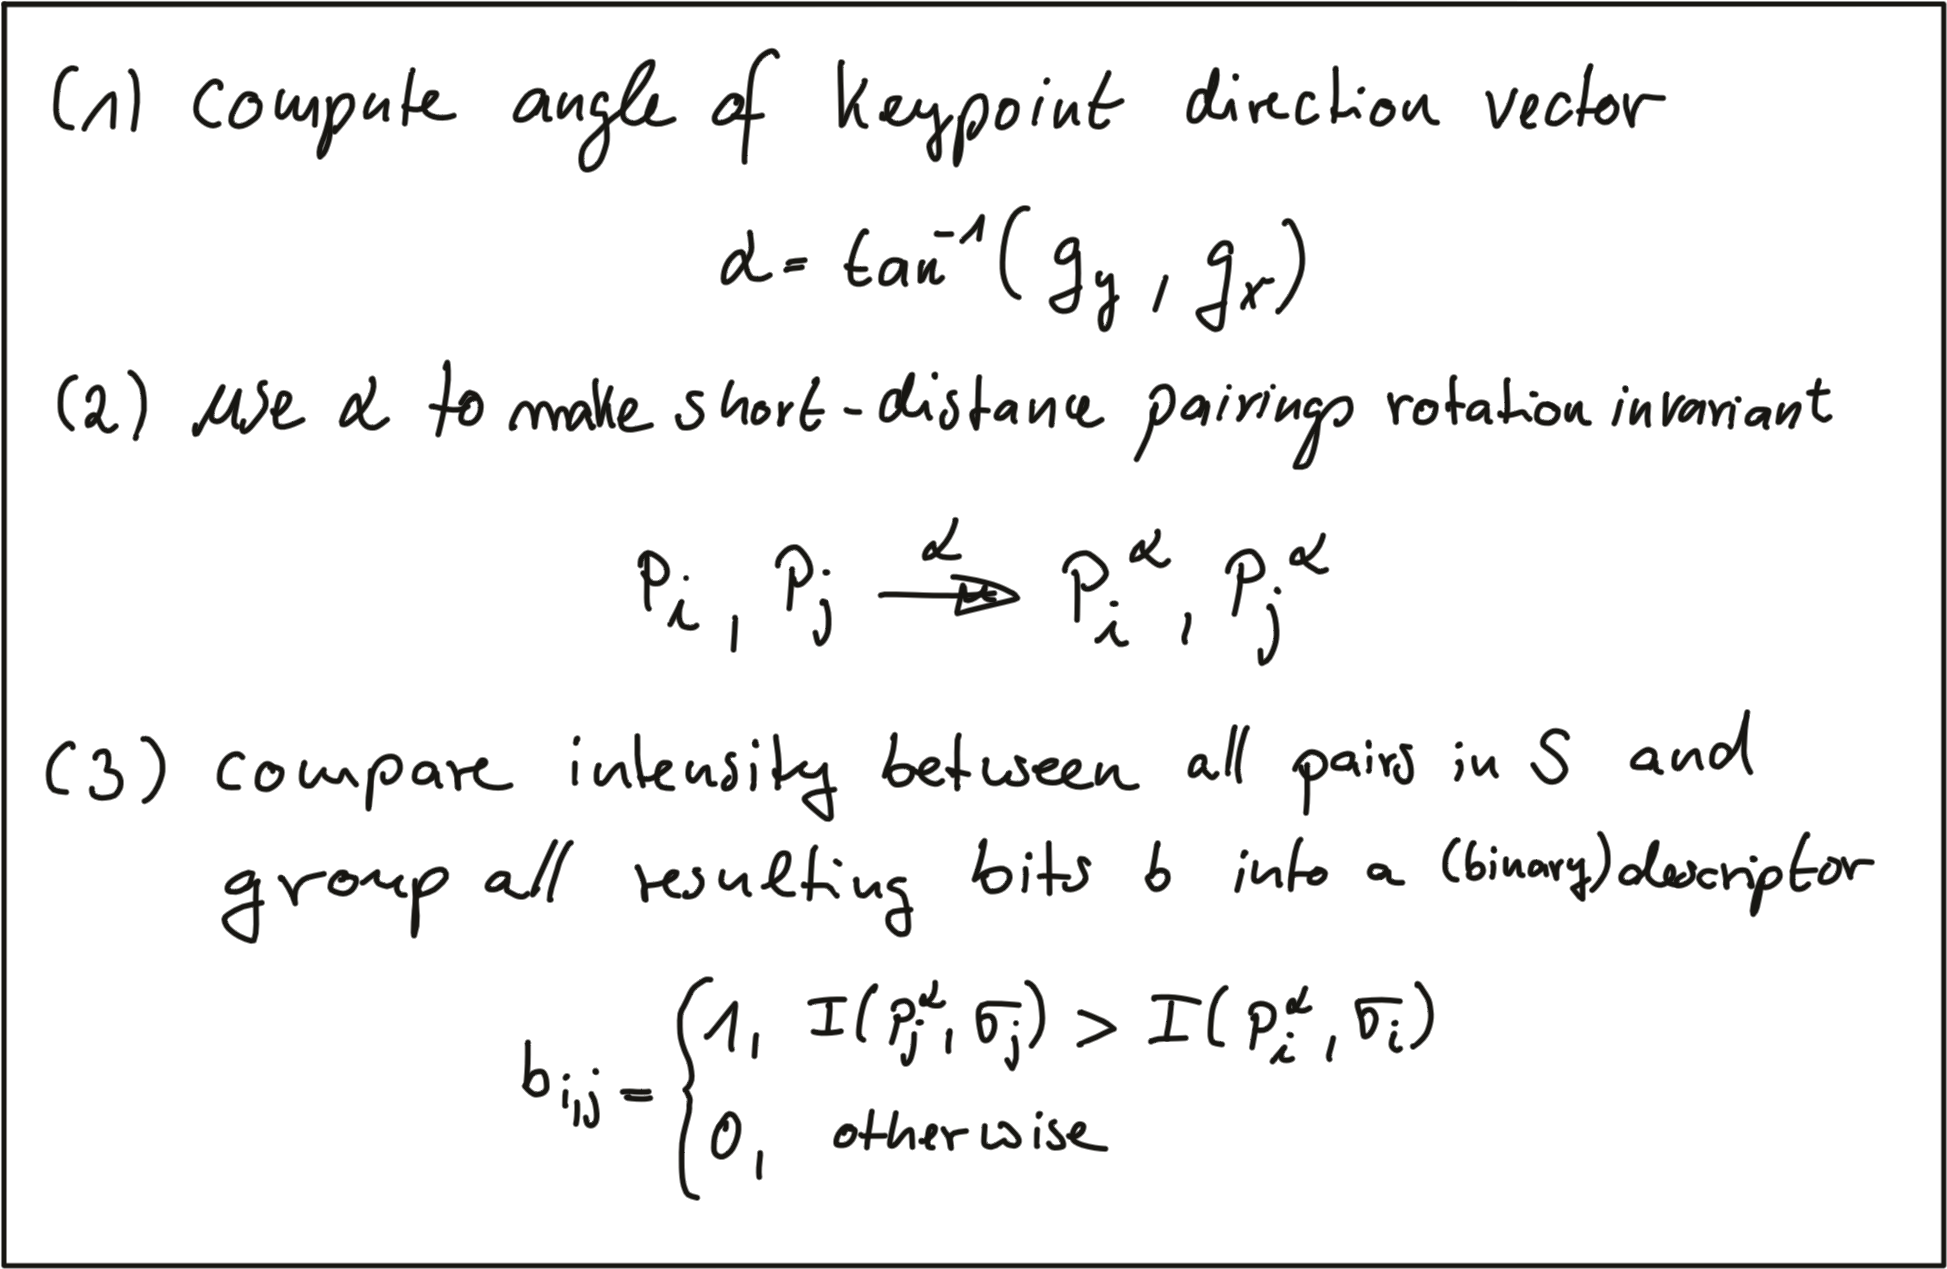 (1) compute angle of keypoint direction vector
α = tan⁻¹(g_y, g_x)
(2) use α to make short-distance pairings rotation invariant
p_i, p_j →^α p_i^α, p_j^α
(3) compare intensity between all pairs in S and
group all resulting bits b into a (binary) descriptor
b_{i,j} = { 1, I(p_j^α, σ_j) > I(p_i^α, σ_i)
0, otherwise